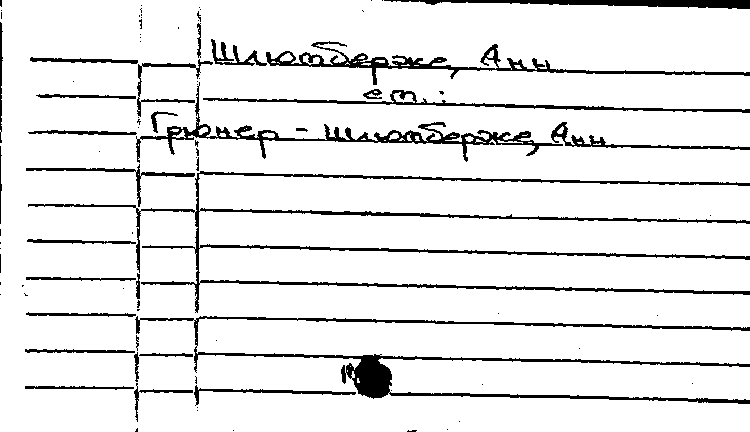 Шлюмберже, Анн
см.:
Грюнер - Шлюмберже, Анн